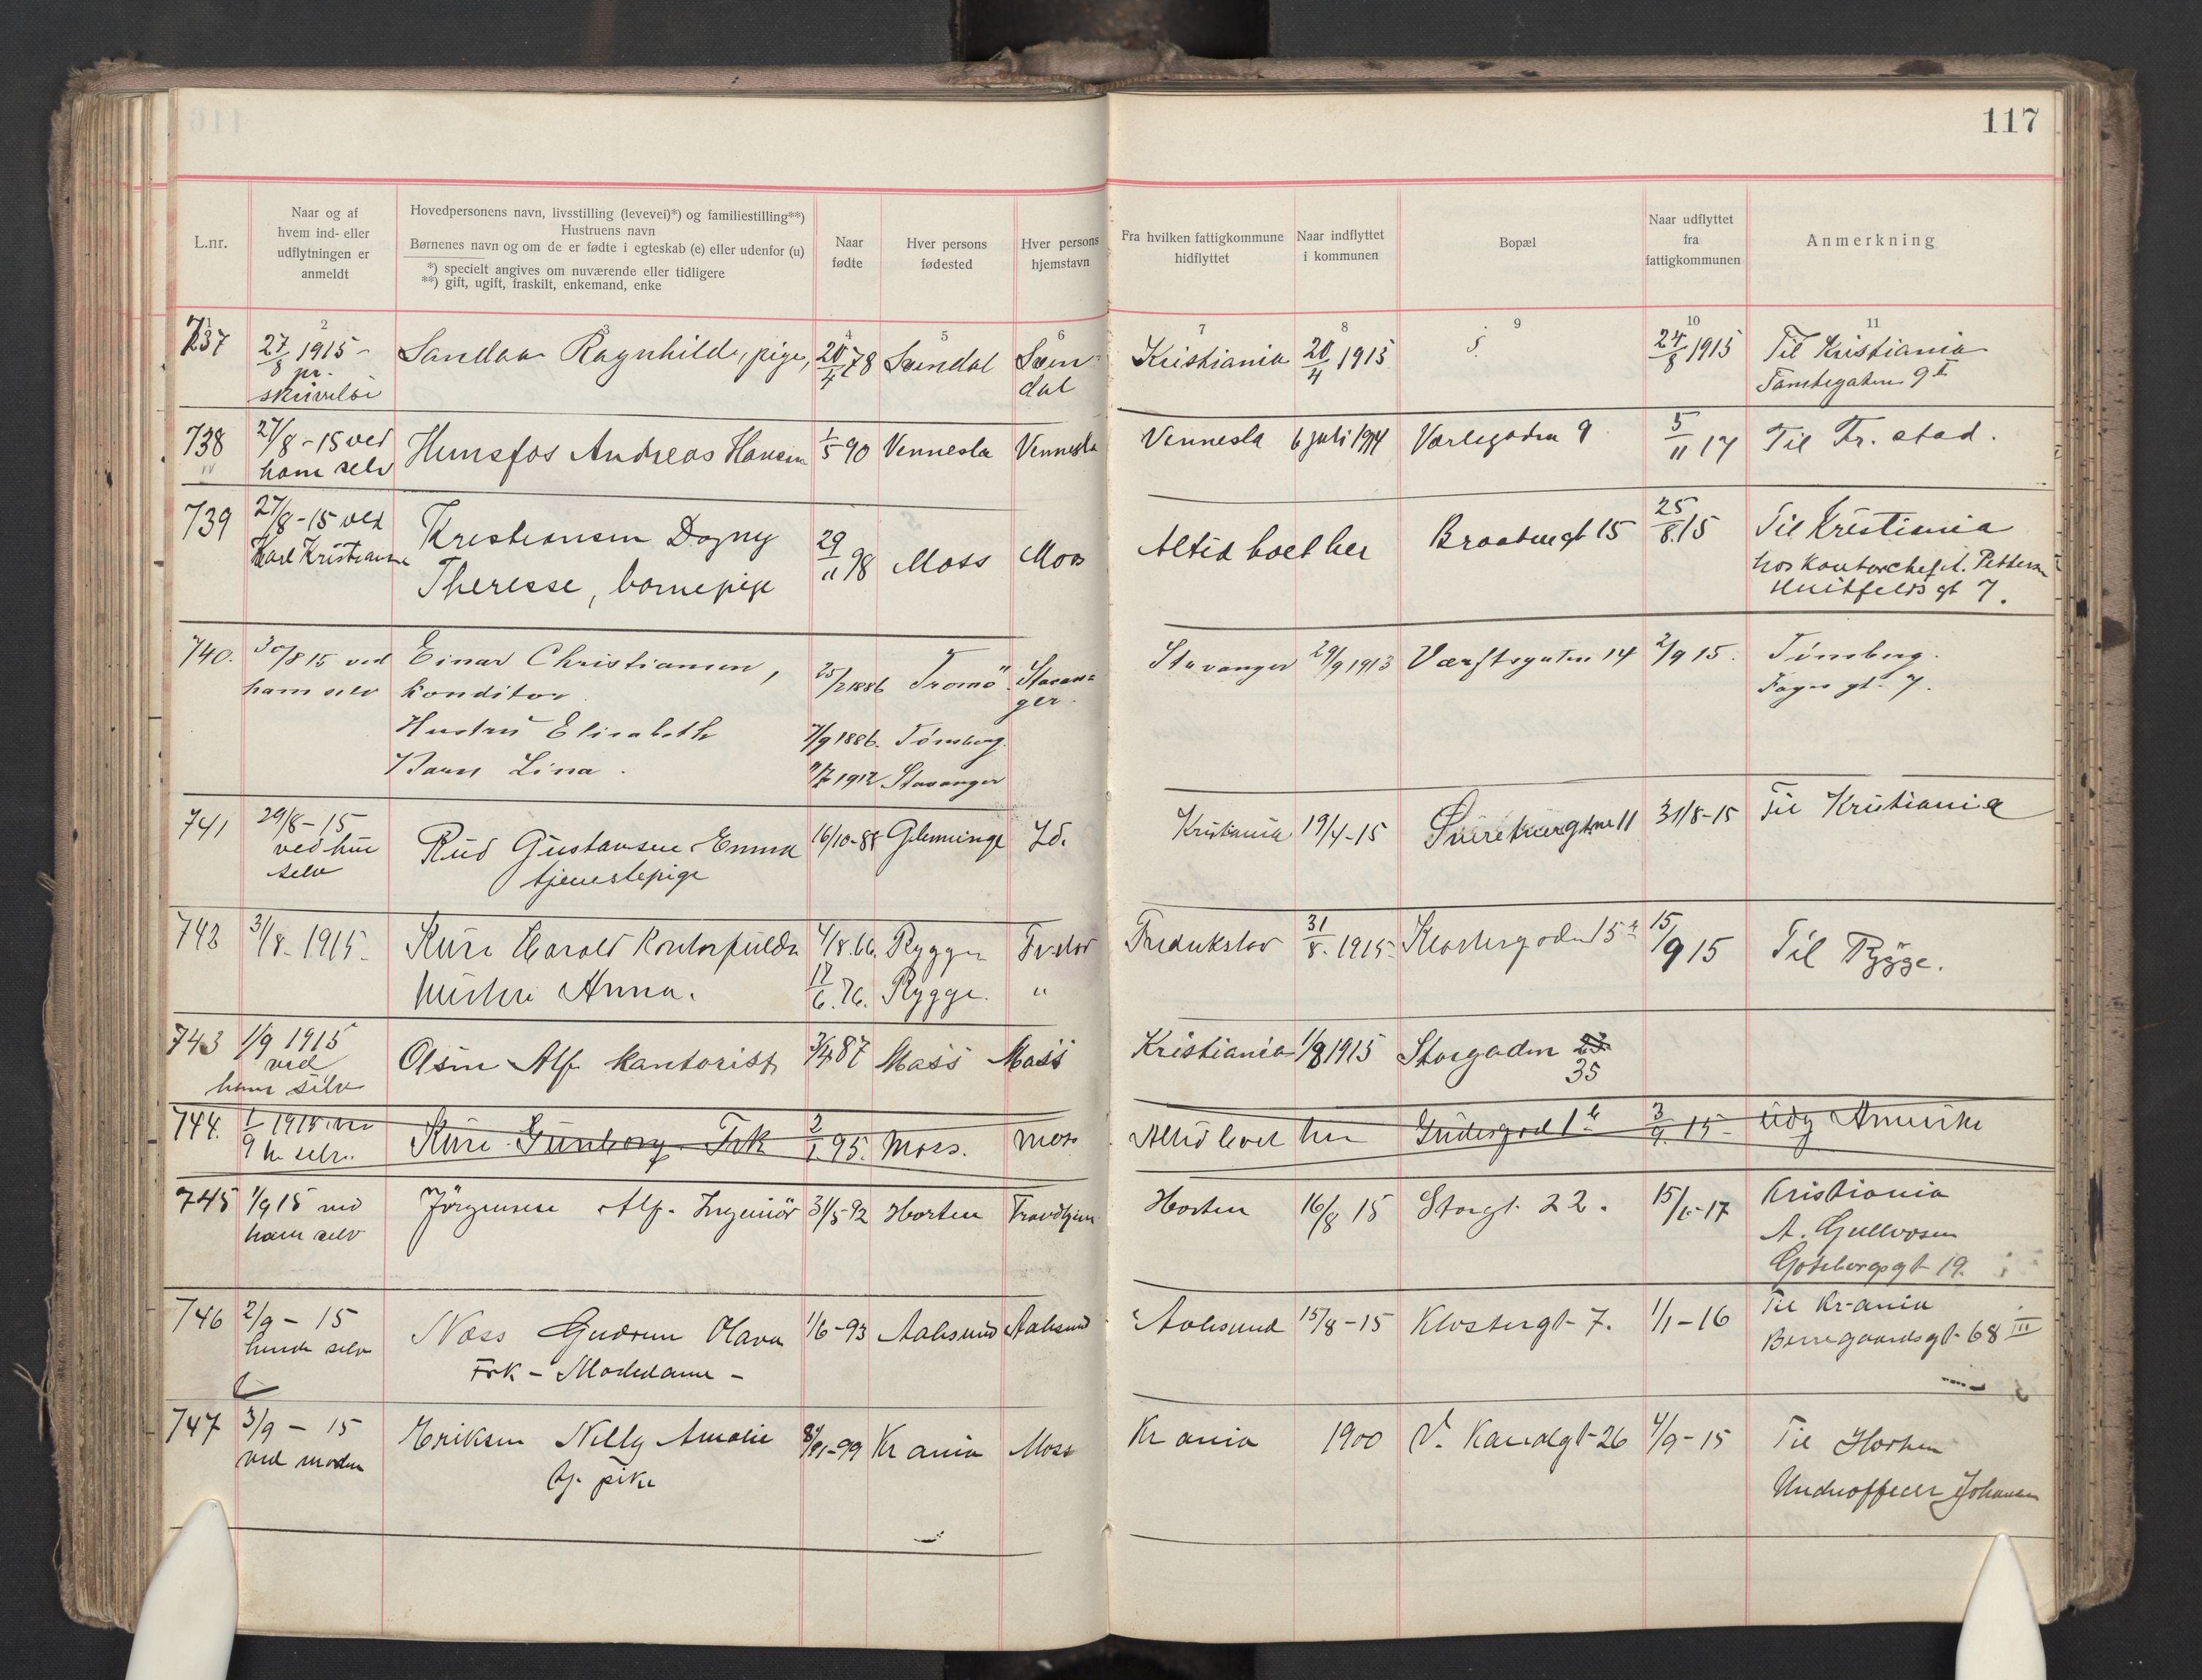 117
L.nr.
Naar og af
hvem ind- eller
udflytningen er
anmeldt
Hovedpersonens navn, livsstilling (levevei)*) og familiestilling**)
Hustruens navn
Børnenes navn og om de er fødte i egteskab (e) eller udenfor (u)
*) specielt angives om nuværende eller tidligere
**) gift, ugift, fraskilt, enkemand, enke
Naar
fødte
Hver persons
fødested
Hver persons
hjemstavn
Fra hvilken fattigkommune
hidflyttet
Naar indflyttet
i kommunen
Bopæl
Naar udflyttet
fra
fattigkommunen
Anmerkning
2 3 4 5 6 7 8 9 10 11
737 27/8 1915 - Sandaa Ragnhild, pige, 20/4 78 Kristiania 20/4 1915 24/8 1915 Til Kristiania
pr.
dal
9 I
738 27/8 - 15 ved Hunsfos Andreas Hansen 1/5 90 Vennesla Vennesla Vennesla 6 juli 1914 Varlegaden 9 5/11 17 Til Fr. stad.
ham selv
739 27/8 - 15 ved Kristiansen Dagny 29/11 98 Moss Moss Altid boet her Braatengt 15 25/8 15 Til Kristiania
Karl Kristiansen Theresse, barnepige
hos Kontorchef A. Pettersen
Huitfeldsgt 7.
740. 30/8 15 ved Einar Christiansen, 25/2 1886 Tromö Stavan=
ham selv konditor ger.
Stavanger 29/9 1913 Værftsgaten 14 2/9 15. Tönsberg.
gt. 7.
Hustru Elisabeth 7/9 1886. Tönsberg.
Barn Lina. 1912 Stavanger
741 29/8 - 15 Rud Gustavsen Emma 16/10-88 Glemminge Id. Kristiania 19/4-15 11 31/8-15 Til Kristiania
ved hun tjenestepige
selv
742 31/8. 1915. Kure Harald 4/8. 66. Rygge Fr.stad Fredrikstad 31/8. 1915. Klostergaden 15 15/9 15 Til Rygge.
hustru Anna. 12/6. 76. Rygge. "
743 1/9 1915 Olsen Alf kontorist 3/4 87 Moss Moss Kristiania 1/8 1915 Storgaden 23
ved 35
ham selv
744. 1/9 1915 ved Kure Gunborg Frk 2/1. 95. Moss. Moss Altid boet her 3/9. 15. Amerika
h. selv.
745 1/9 15 ved Jörgensen Alf. Ingeniör 31/5-92 Horten Trondhjem Horten 16/8 15 Storgt. 22. 15/6-17 Kristiania
ham selv A. Gullovsen
Gøteborggt 19.
746 2/9 - 15 Næss Gudrun Olava 1/6-93 Aalesund Aalesund Aalesund 15/8-15 Klostergt 7. 1/1-16 Til Kr-ania
hende selv Frk - Modedame -
68 III
747 3/9 - 15 Eriksen Nelly Amalie Kr ania Moss Kr ania 1900 V. Kanalgt 26 4/9-15 Til Horten
ved moder tj. pike
Underofficer Johansen